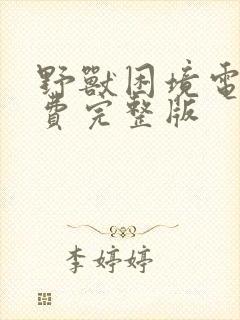 野獸困境電
費完整版
李婷婷